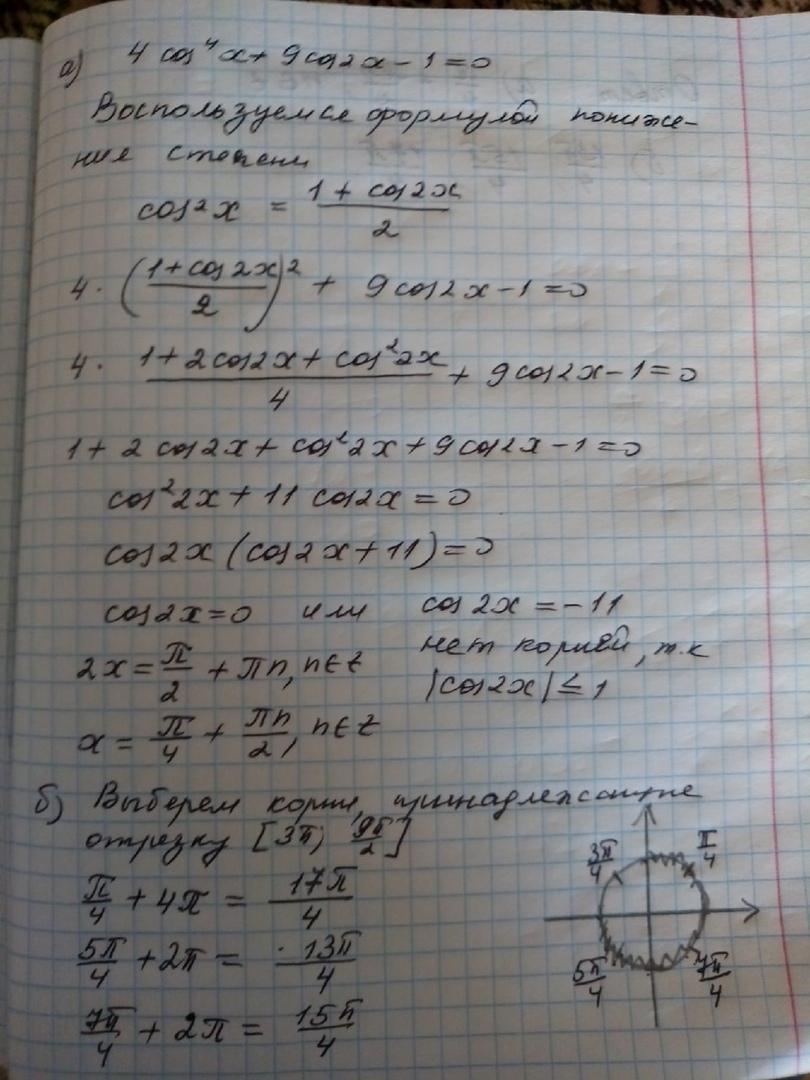 а) 4 cos⁴x + 9cos2x − 1 = 0
Воспользуемся формулой пониже-
ние степени
cos²x = (1 + cos2x)/2
4 · ((1 + cos2x)/2)² + 9cos2x − 1 = 0
4 · (1 + 2cos2x + cos²2x)/4 + 9cos2x − 1 = 0
1 + 2 cos2x + cos²2x + 9cos2x − 1 = 0
cos²2x + 11 cos2x = 0
cos2x (cos2x + 11) = 0
cos2x = 0 или cos2x = −11
2x = π/2 + πn, n∈Z нет корней, т.к
x = π/4 + πn/2, n∈Z |cos2x| ≤ 1
б) Выберем корни, принадлежащие
отрезку [3π; 9π/2]
π/4 + 4π = 17π/4
5π/4 + 2π = 13π/4
7π/4 + 2π = 15π/4
3π/4 π/4
5π/4 7π/4